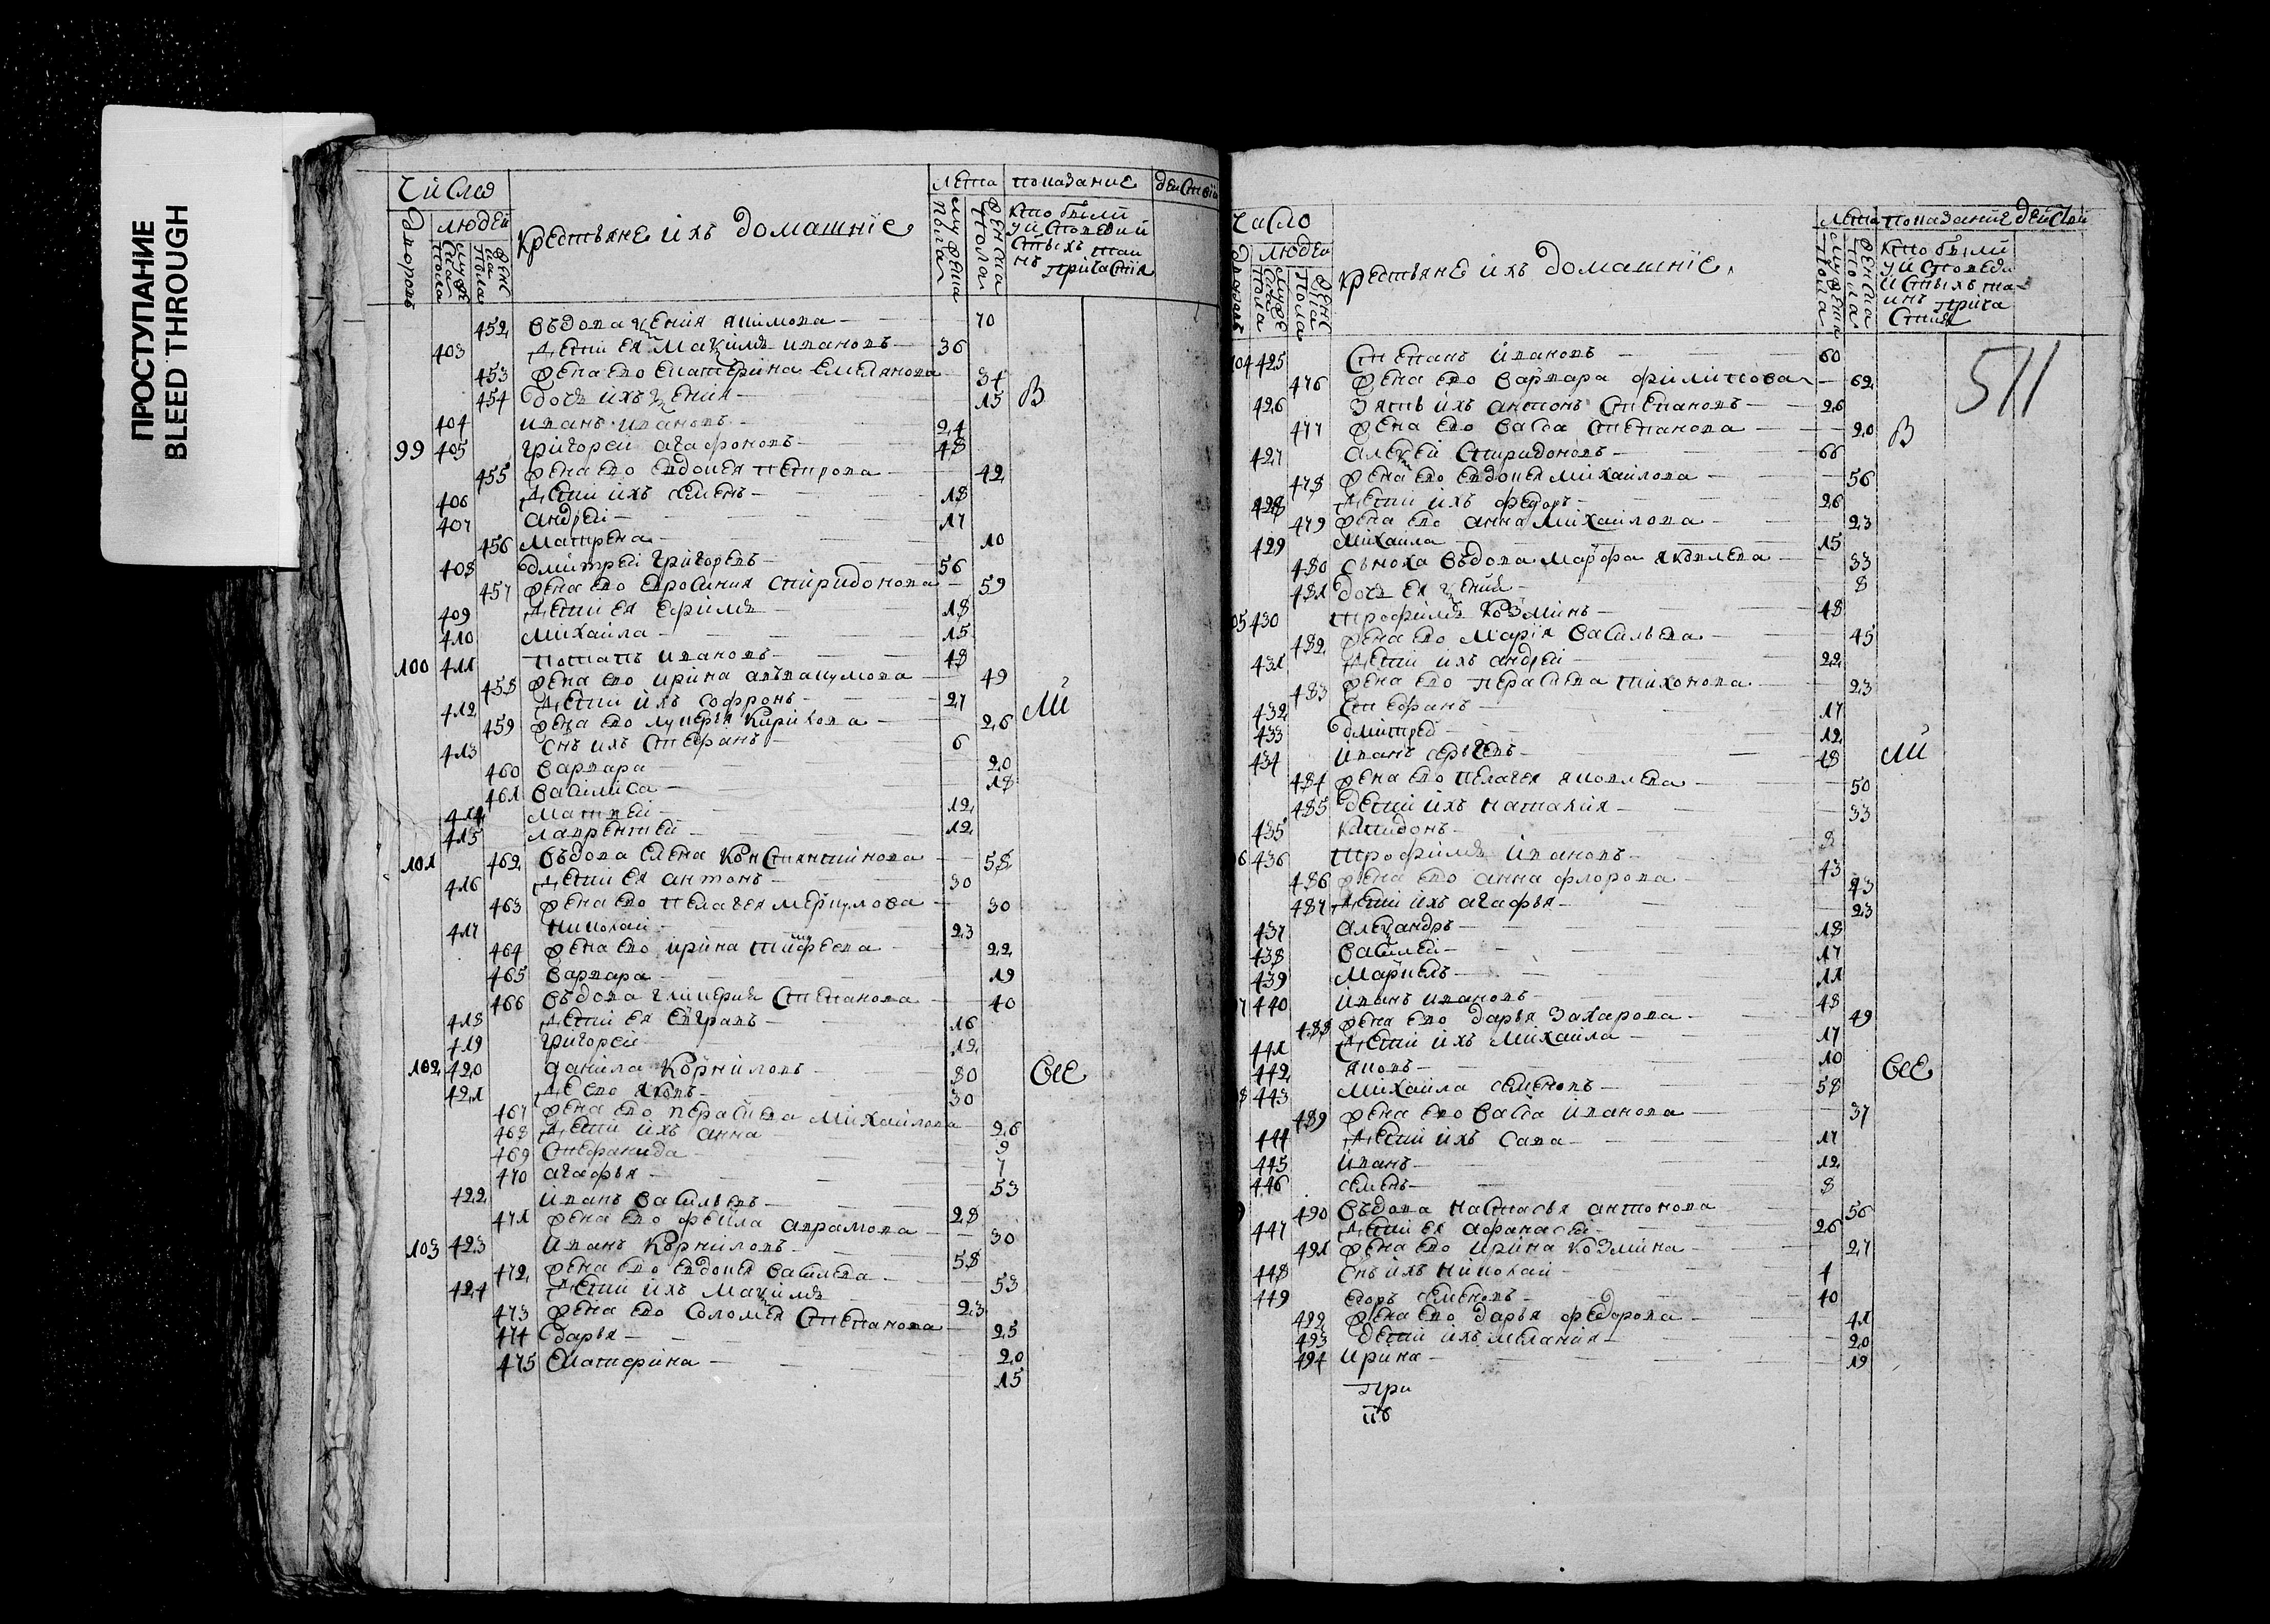 ПРОСТУПАНИЕ
BLEED THROUGH
Числа
Крестьяне ихъ домашніе
лета
показание
действий
дворовъ
людей
мужеска пола
женска пола
кто были
у исповеди й
стыхъ таи
нъ причастия
452 въдова ѯения якимова 70
403 Дети ея Маѯимъ ивановъ 36
453 жена ево екатерина емелянова 34
454 дочь ихъ ѯения 15
В
404 иванъ ивановъ 24
99 405 григорей агафоновъ 48
455 жена ево евдокея петрова 42
406 Дети ихъ семенъ 18
407 андрей 17
456 матрена 10
408 дмитрей григоревъ 56
457 жена ево евросиния спиридонова 59
409 Дети ея ефимъ 18
410 михайла 15
100 411 потапъ ивановъ 48
458 жена ево ирина авъвакумова 49
412 Дети ихъ софронъ 27
459 жена ево лукерья кирикова 26
ли
413 снъ ихъ стефанъ 6
460 варвара 20
461 васились 18
414 матвей 12
415 лаврентей 12
101 462 въдова елена константинова 58
416 Дети ея антонъ 30
463 жена ево пелагея меркулова 30
417 николай 23
464 жена ево ирина тимофеева 22
465 варвара 19
466 въдова гликерия степанова 40
418 Дети ея евгравъ 16
419 григорей 12
102 420 данила корниловъ 80
все
421 Д ево яковъ 30
467 жена ево парасковья михайлова 26
468 Дети ихъ анна 9
469 стефанида 7
470 агафья
422 иванъ васильевъ 28
53
471 жена ево фекла аврамова 30
103 423 иванъ корниловъ 58
472 жена ево евдокея васильева 53
424 Дети ихъ маѯимъ 23
473 жена ево соломея степанова 25
474 дарья 20
475 екатерина 15
Число
Крестьяне ихъ домашніе
лета
показание
действий
дворовъ
людей
мужеска пола
женска пола
кто были
у исповеди
и стыхъ та
инъ прича
стия
511
104 425 степанъ ивановъ 60
476 жена ево варвара филипова 62
426 зять ихъ антонъ степановъ 26
477 жена ево васса степанова 20
В
427 алеѯей спиридоновъ 66
478 жена ево евдокея михайлова 56
428 Дети ихъ федоръ 26
479 жена ево анна михайлова 23
429 михаила 15
480 сноха въдова марфа яковлева 33
481 дочь ея ѯения 8
05 430 трофимъ козминъ 48
482 жена ево мария васильева 45
431 Дети ихъ андрей 22
483 жена ево парасковья тихонова 23
432 стефанъ 17
433 дмитрей 12
434 иванъ сергеевъ 48
ли
484 жена ево пелагея яковлева 50
485 дети ихъ наталия 33
435 капидонъ 8
6 436 трофимъ ивановъ 43
486 жена ево анна флорова 43
487 Дети ихъ агафья 23
437 алеѯандръ 18
438 василей 17
439 маркелъ 11
7 440 иванъ ивановъ 48
488 жена ево дарья захарова 49
441 Дети ихъ михаила 17
442 яковъ 10
все
8 443 михаила семеновъ 58
489 жена ево васса иванова 37
444 Дети ихъ сава 17
445 иванъ 12
446 семенъ 8
490 въдова настасья антонова 56
447 Дети ея афанасей 26
491 жена ево ирина козмина 27
448 снъ ихъ николай 1
449 егоръ семеновъ 40
492 жена ево дарья федорова 41
493 дети ихъ мелания 20
494 ирина 19
при
въ